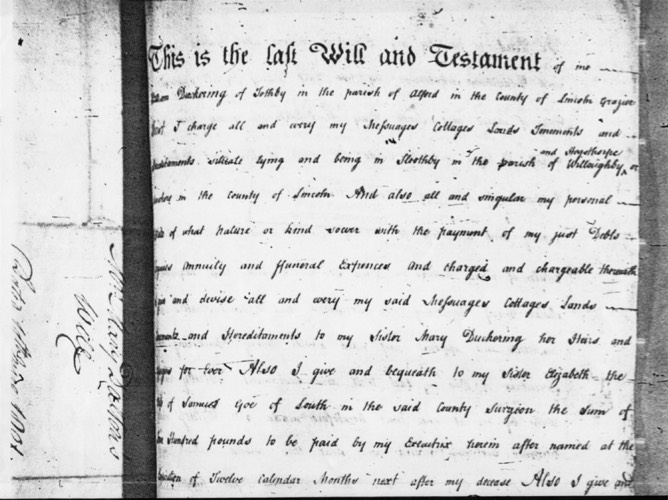 This is the last Will and Testament of me
Duckering of Tothby in the parish of Alford in the County of Lincoln Grazier
First I charge all and every my Messuages Cottages Lands Tenements and
and Asserthorpe
situate lying and being in Sloothby in the parish of Willoughby or
in the County of Lincoln And also all and singular my personal
of what Nature or kind soever with the payment of my just Debts
Annuity and Funeral Expences And charged and chargeable therewith
and devise all and every my said Messuages Cottages Lands
and Hereditaments to my Sister Mary Duckering her Heirs and
for Ever Also I give and bequeath to my Sister Elizabeth the
of Samuel Goe of Louth in the said County Surgeon the Sum of
Hundred pounds to be paid by my Executrix herein after named at the
of Twelve Calendar Months next after my decease Also I give and
Will